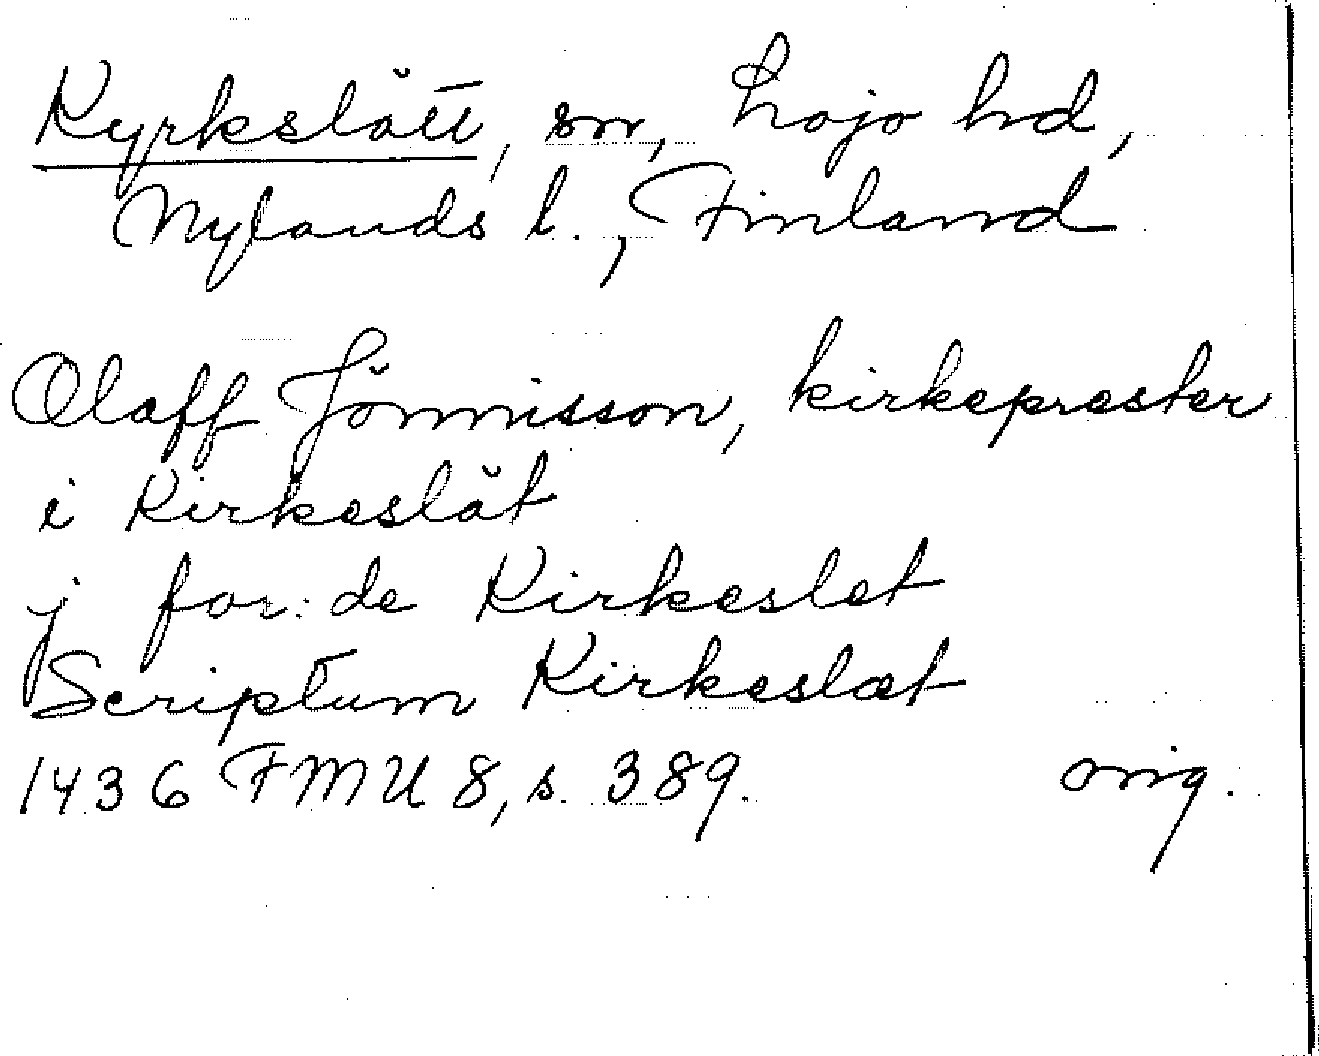 Kyrkslätt, sn, Lojo hd,
Nylands l., Finland
Olaff Jönnisson, kirkeprester
i Kirkeslät
j for:de Kirkeslet
Scriptum Kirkeslæt
1436 FMU 8, s. 389. orig.